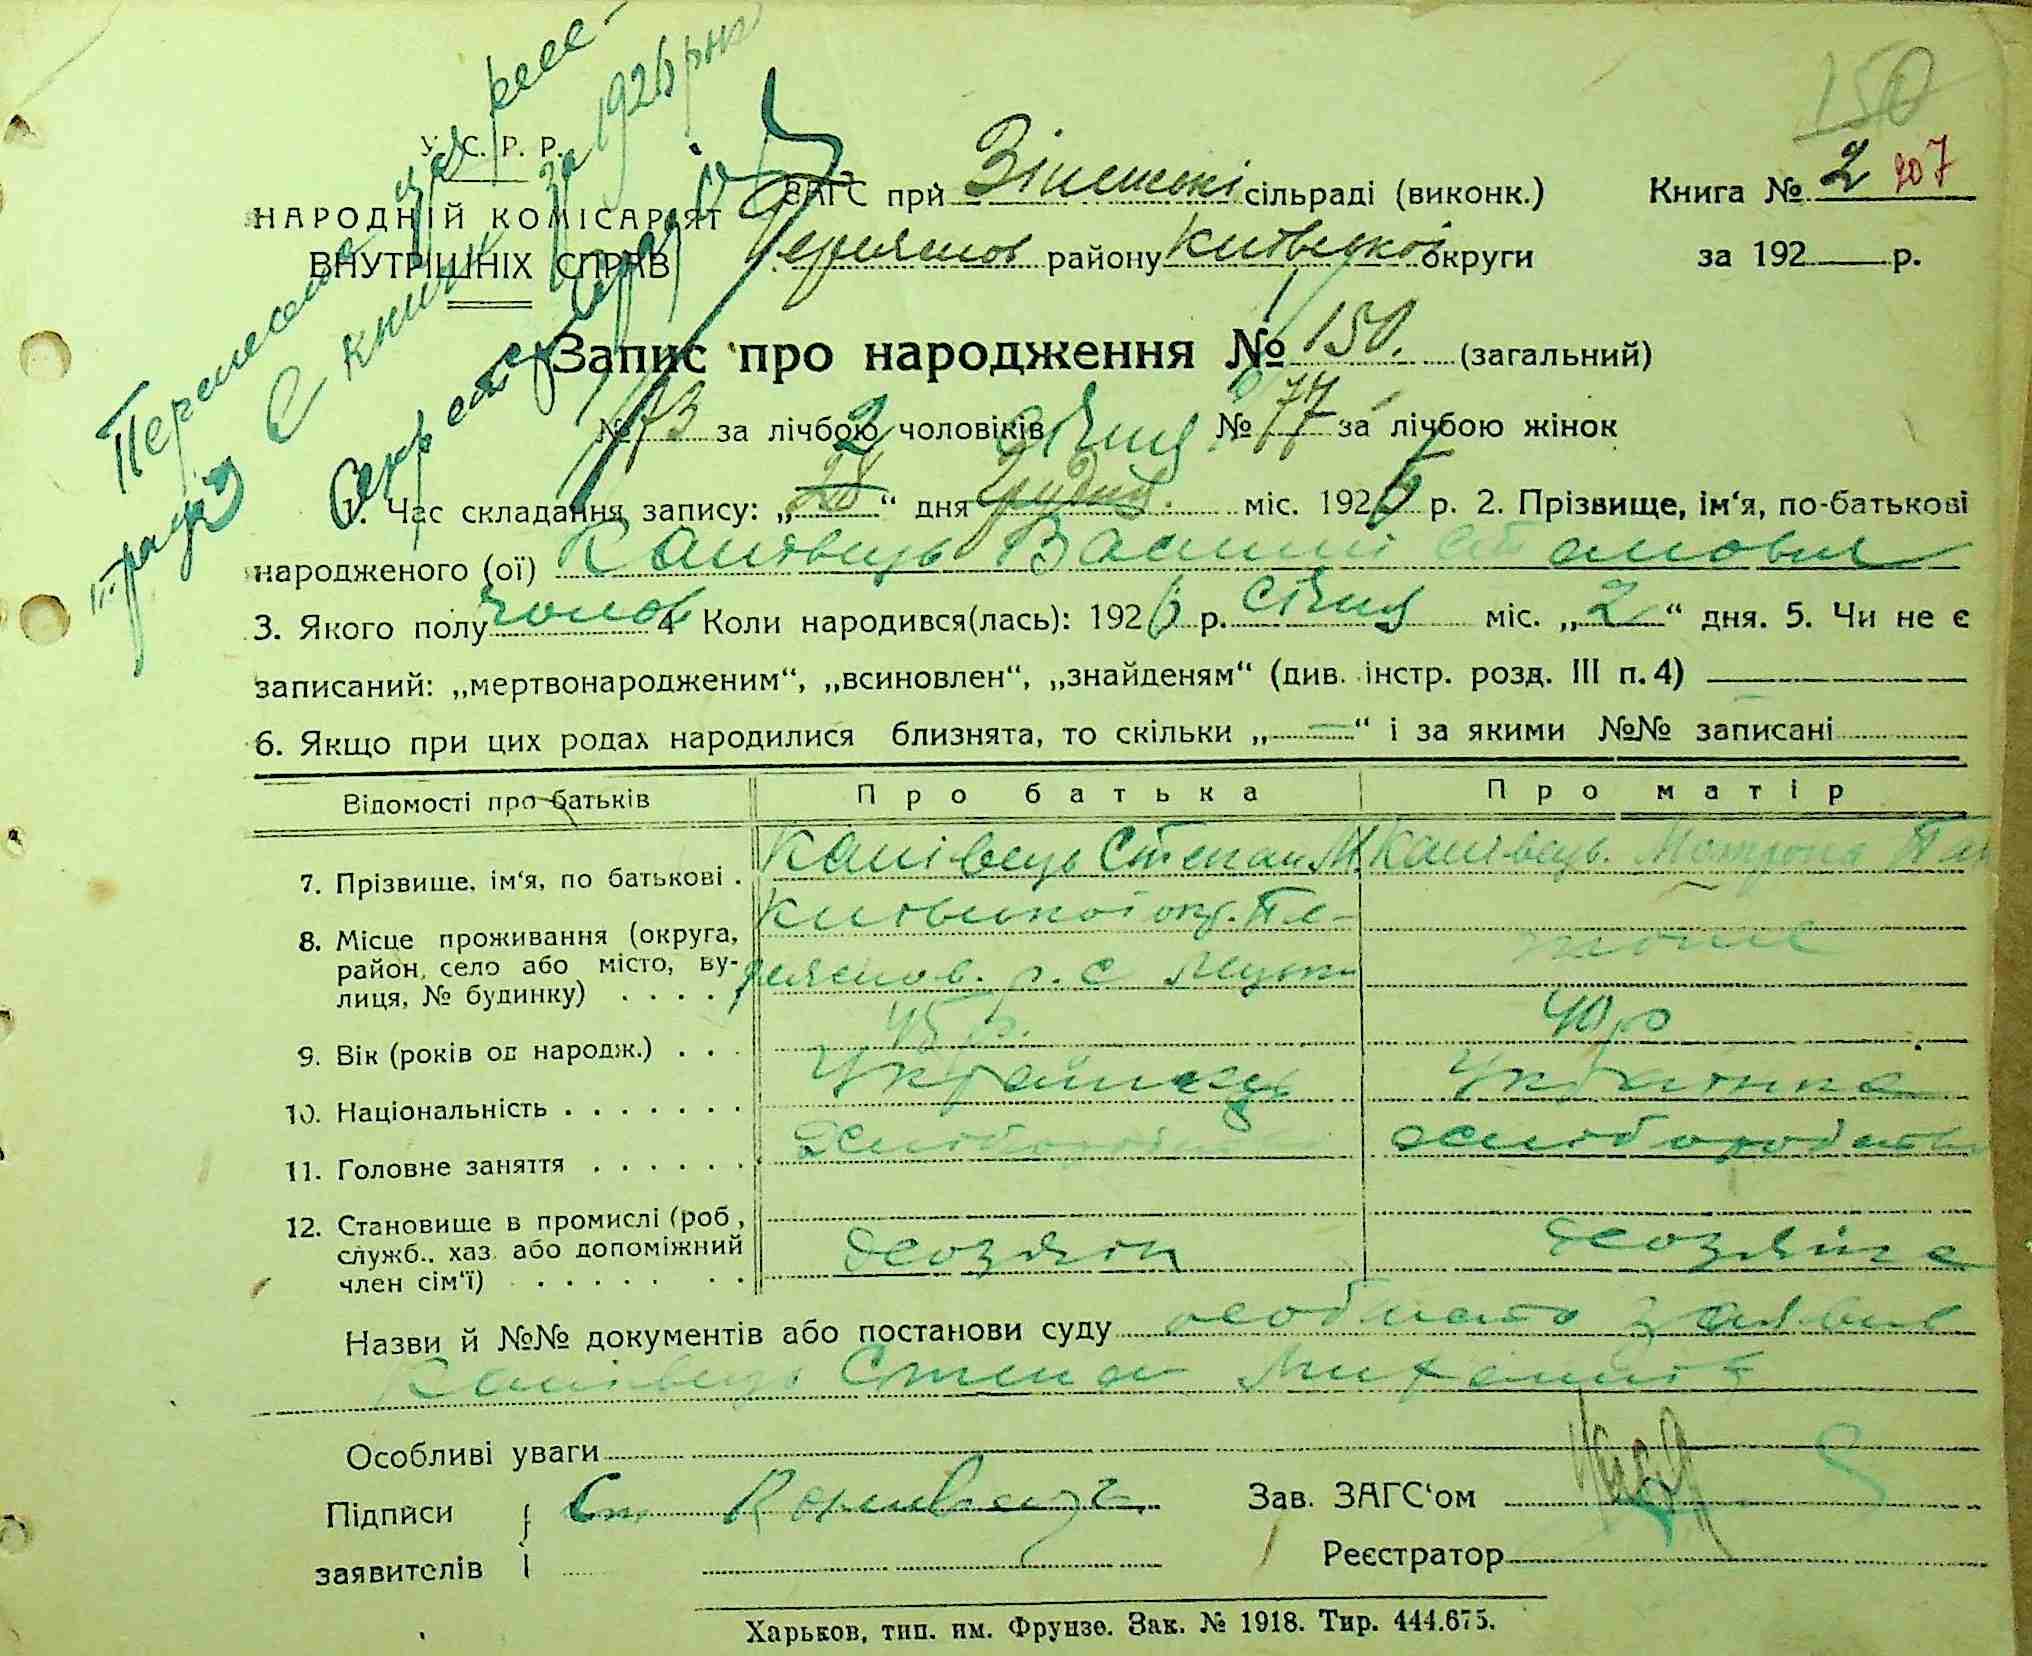 150
У. С. Р. Р.
НАРОДНІЙ КОМІСАРІЯТ
ВНУТРІШНІХ СПРАВ
за 1926 рік
ЗАГС при сільраді (виконк.)
району Київської округи
Книга № 2 207
за 192 р.
Запис про народження № 150. (загальний)
№ 73 за лічбою чоловіків № 77 за лічбою жінок
2 січня
1. Час складання запису: „28“ дня Грудня міс. 1926 р. 2. Прізвище, ім‘я, по-батькові
народженого (ої) Канівець Василь
3. Якого полу чолов 4 Коли народився(лась): 1926 р. січня міс. „2“ дня. 5. Чи не є
записаний: „мертвонародженим“, „всиновлен“, „знайденям“ (див. інстр. розд. III п. 4)
6. Якщо при цих родах народилися близнята, то скільки „—“ і за якими №№ записані
Відомості про батьків Про батька Про матір
7. Прізвище, ім‘я, по батькові . Канівець Степан М. Канівець Мотрона
8. Місце проживання (округа, район, село або місто, вулиця, № будинку) . . . . Київської окр. Переяслов. р. с
9. Вік (років од народж.) . . . 45 р. 40 р
10. Національність . . . . . . . Українець Українка
11. Головне заняття . . . . . . хліборобство хліборобство
12. Становище в промислі (роб., служб., хаз. або допоміжний член сім‘ї) . . . . . . . . хозяїн хозяйка
Назви й №№ документів або постанови суду особисто заявив
Канівець Степан
Особливі уваги
Підписи Ст. Канивець Зав. ЗАГС‘ом
заявителів Реєстратор
Харьков, тип. им. Фрунзе. Зак. № 1918. Тир. 444.675.